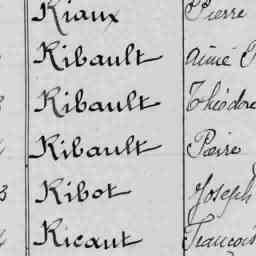 Riaux Pierre
Ribault Aimé
Ribault Théodore
Ribault Pierre
3 Ribot Joseph
Ricaut François